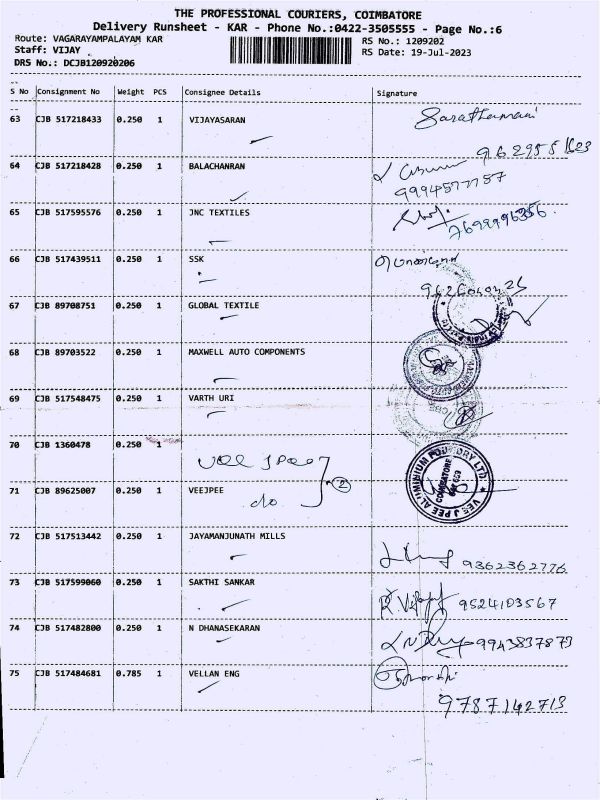 THE PROFESSIONAL COURIERS, COIMBATORE
Delivery Runsheet - KAR - Phone No.:0422-3505555 - Page No.:6
Route: VAGARAYAMPALAYAM KAR
RS No.: 1209202
Staff: VIJAY
RS Date: 19-Jul-2023
DRS No.: DCJB120920206
S No Consignment No Weight PCS Consignee Details Signature
63 CJB 517218433 0.250 1 VIJAYASARAN
64 CJB 517218428 0.250 1 BALACHANRAN
9994577757
65 CJB 517595576 0.250 1 JNC TEXTILES
66 CJB 517439511 0.250 1 SSK
67 CJB 89708751 0.250 1 GLOBAL TEXTILE
68 CJB 89703522 0.250 1 MAXWELL AUTO COMPONENTS
69 CJB 517548475 0.250 1 VARTH URI
70 CJB 1360478 0.250 1
71 CJB 89625007 0.250 1 VEEJPEE
do 2
VEEJPEE ALUMINIUM FOUNDRY LTD.
COIMBATORE
72 CJB 517513442 0.250 1 JAYAMANJUNATH MILLS
9362362776
73 CJB 517599060 0.250 1 SAKTHI SANKAR
9524103567
74 CJB 517482800 0.250 1 N DHANASEKARAN
9943837873
75 CJB 517484681 0.785 1 VELLAN ENG
9787142713